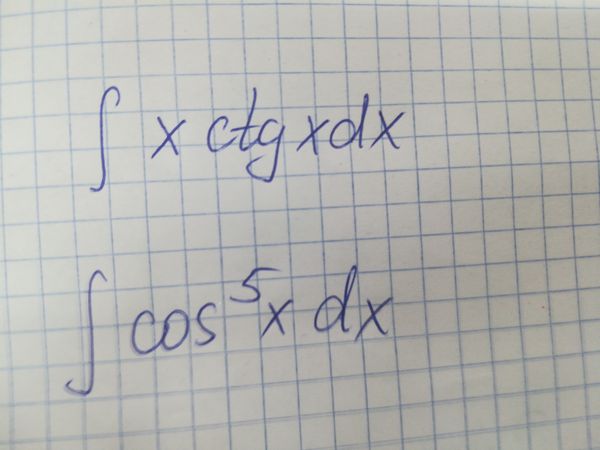 ∫ x ctg x dx
∫ cos⁵x dx